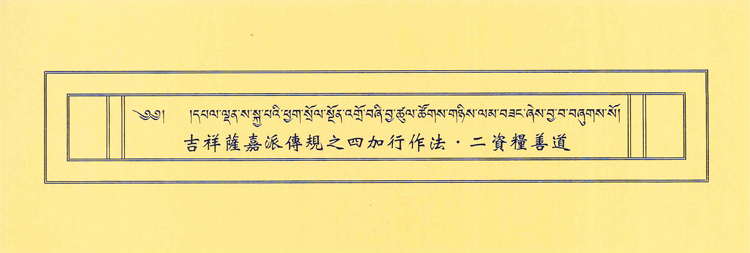 ༄༅། །དཔལ་ལྡན་ས་སྐྱ་པའི་ཕྱག་སྲོལ་སྔོན་འགྲོ་བཞི་བྱ་ཚུལ་ཚོགས་གཉིས་ལམ་བཟང་ཞེས་བྱ་བ་བཞུགས་སོ།
吉祥薩嘉派傳規之四加行作法・二資糧善道